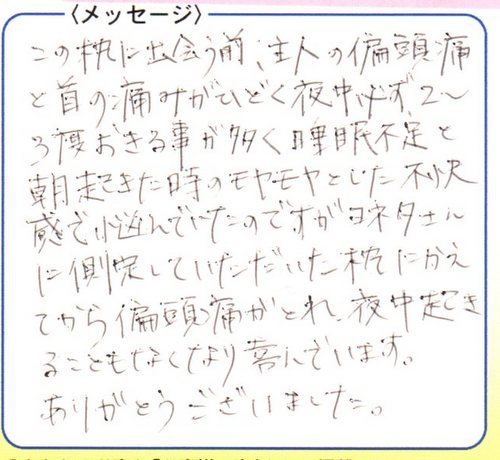 〈メッセージ〉
この枕に出会う前、主人の偏頭痛
と首の痛みがひどく夜中必ず、2〜
3度おきる事が多く睡眠不足と
朝起きた時のモヤモヤとした不快
感で悩んでいたのですがヨネタさん
に側定していただいた枕にかえ
てから偏頭痛がとれ、夜中起き
ることもなくなり喜んでいます。
ありがとうございました。